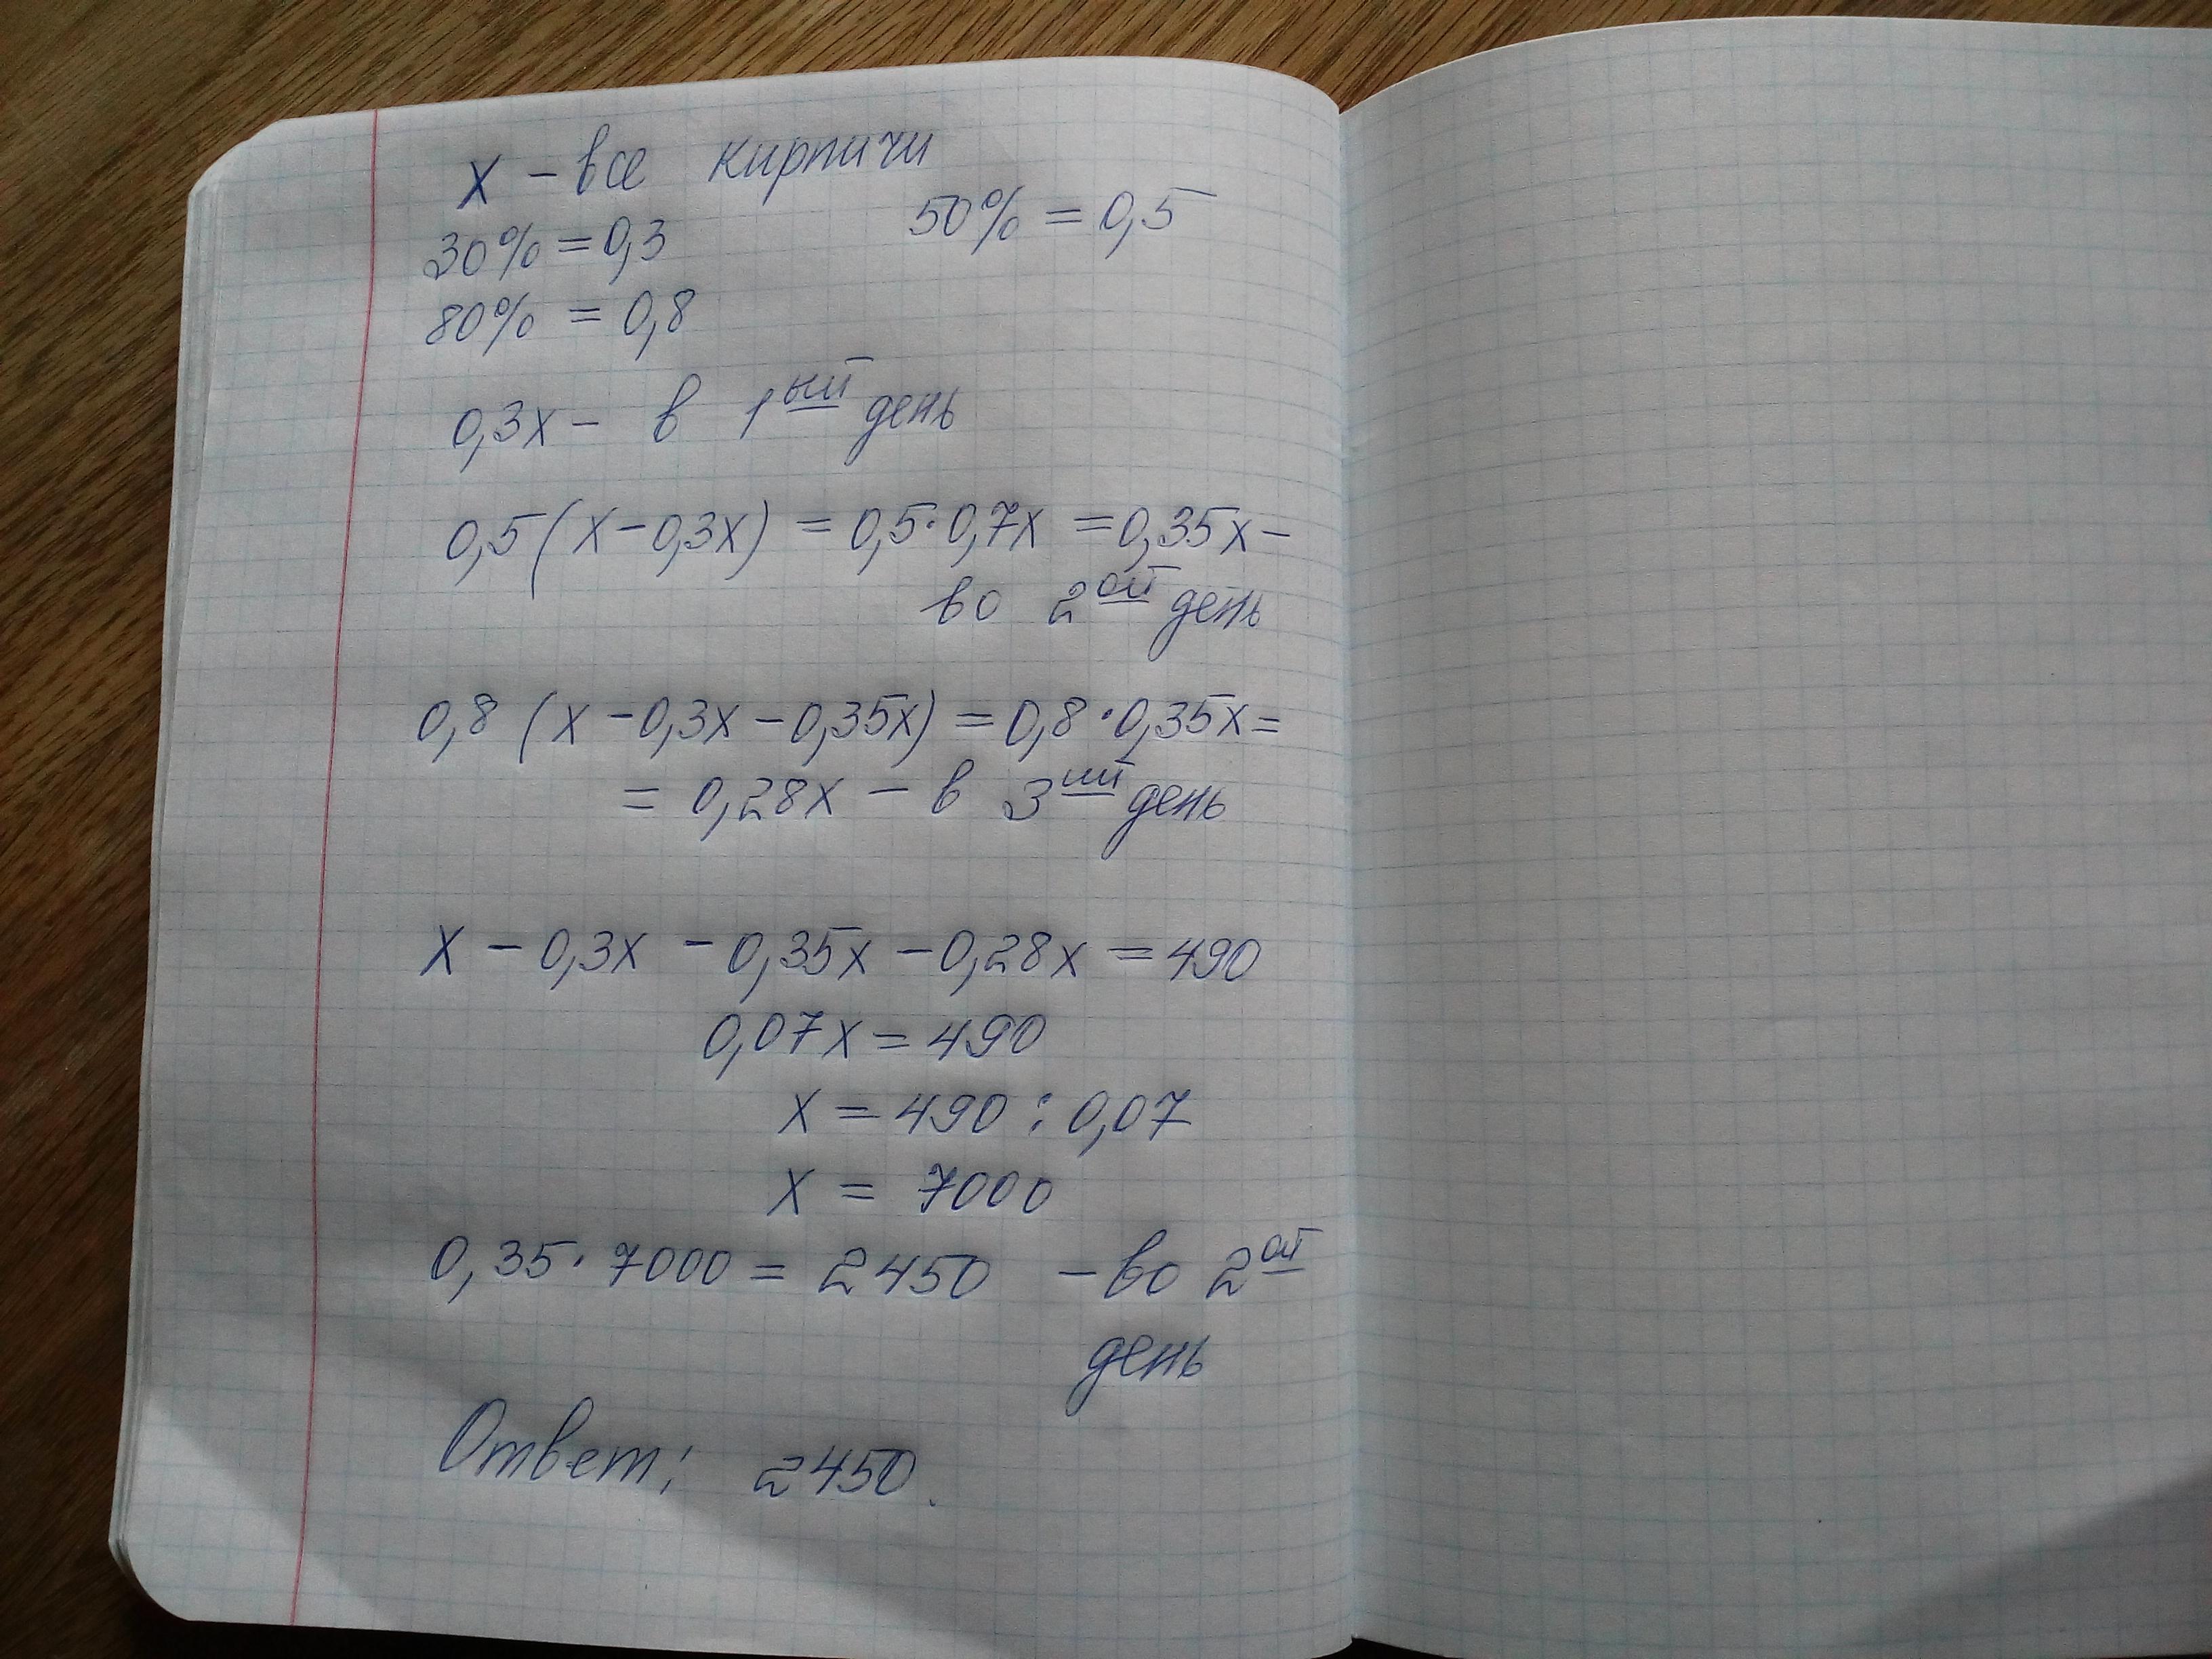 x - все кирпичи
30% = 0,3 50% = 0,5
80% = 0,8
0,3x - в 1ый день
0,5(x-0,3x) = 0,5·0,7x = 0,35x -
во 2ой день
0,8 (x - 0,3x - 0,35x) = 0,8·0,35x =
= 0,28x - в 3ий день
x - 0,3x - 0,35x - 0,28x = 490
0,07x = 490
x = 490 : 0,07
x = 7000
0,35·7000 = 2450 - во 2ой
день
Ответ: 2450.